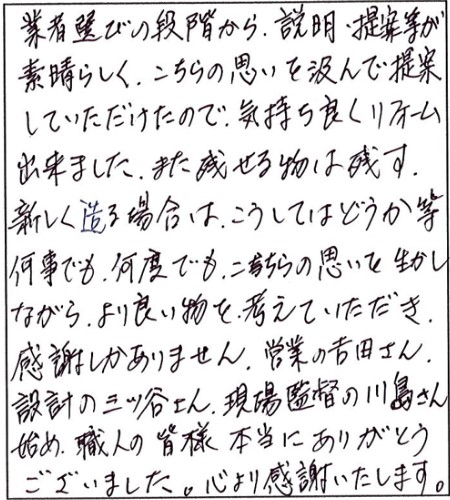 業者選びの段階から、説明・提案等が
素晴らしく、こちらの思いを汲んで提案
していただけたので、気持ち良くリフォーム
出来ました。また残せる物は残す、
新しく造る場合は、こうしてはどうか等
何事でも、何度でも、こちらの思いを生かし
ながら、より良い物を、考えていただき、
感謝しかありません。営業の吉田さん、
設計の三ツ谷さん、現場監督の川島さん
始め、職人の皆様 本当にありがとう
ございました。心より感謝いたします。